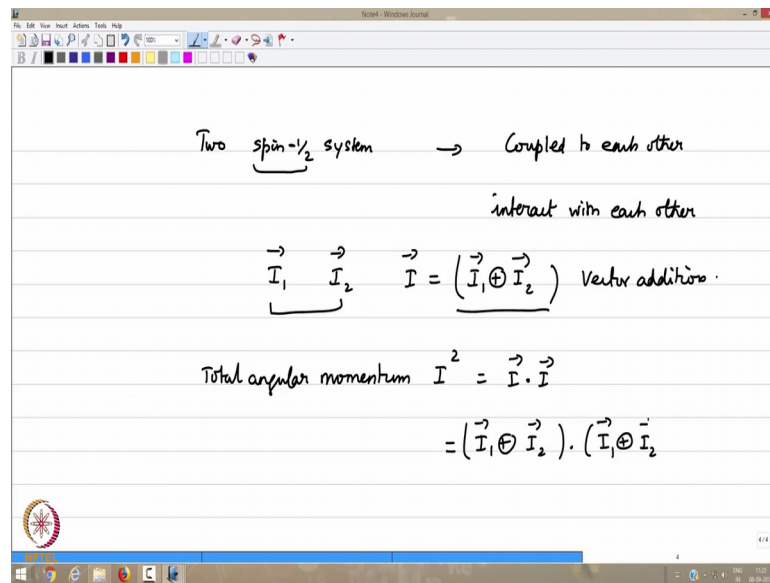 Note4 - Windows Journal
File Edit View Insert Actions Tools Help
100%
B I
Two spin-1/2 system → Coupled to each other
interact with each other
I⃗₁ I⃗₂ I⃗ = (I⃗₁ ⊕ I⃗₂) Vector addition.
Total angular momentum I² = I⃗ · I⃗
= (I⃗₁ ⊕ I⃗₂) · (I⃗₁ ⊕ I₂
4/4
NPTEL
4
ENG 11:23
IN